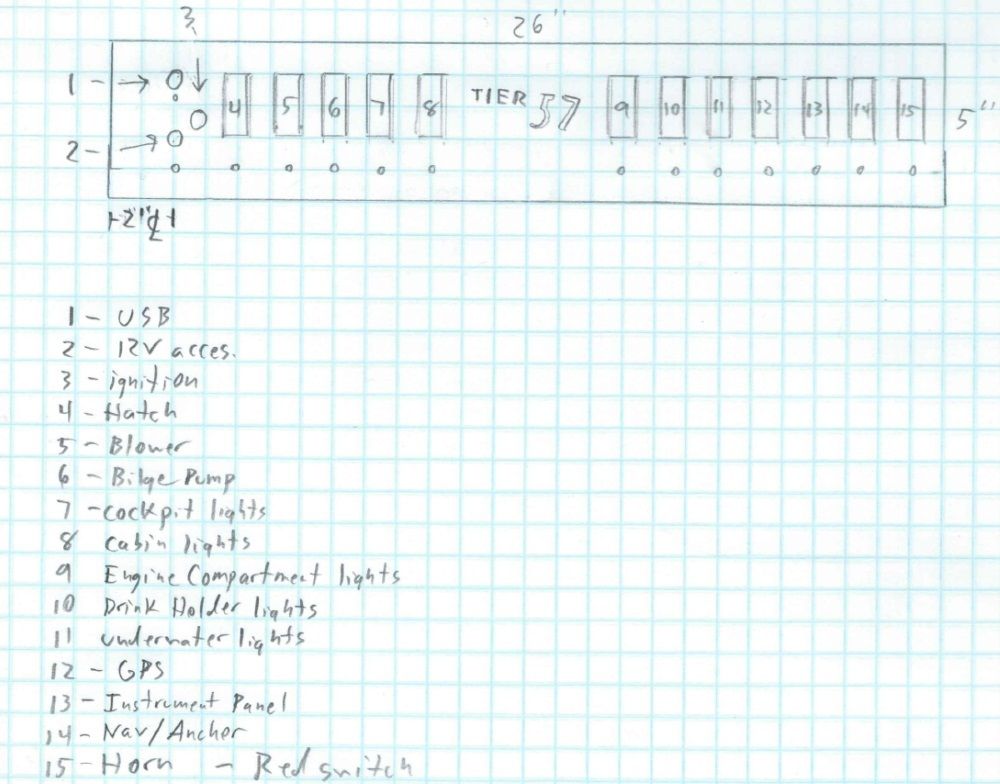 3
26"
1 -
4 5 6 7 8 TIER 57 9 10 11 12 13 14 15
5"
2 -
1 - USB
2 - 12V acces.
3 - ignition
4 - Hatch
5 - Blower
6 - Bilge Pump
7 - cockpit lights
8 Cabin lights
9 Engine Compartment lights
10 Drink Holder lights
11 underwater lights
12 - GPS
13 - Instrument Panel
14 - Nav/Anchor
15 - Horn - Red switch